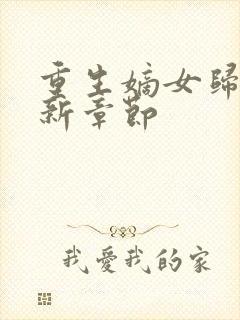 重生嫡女歸
新章節
我愛我的家